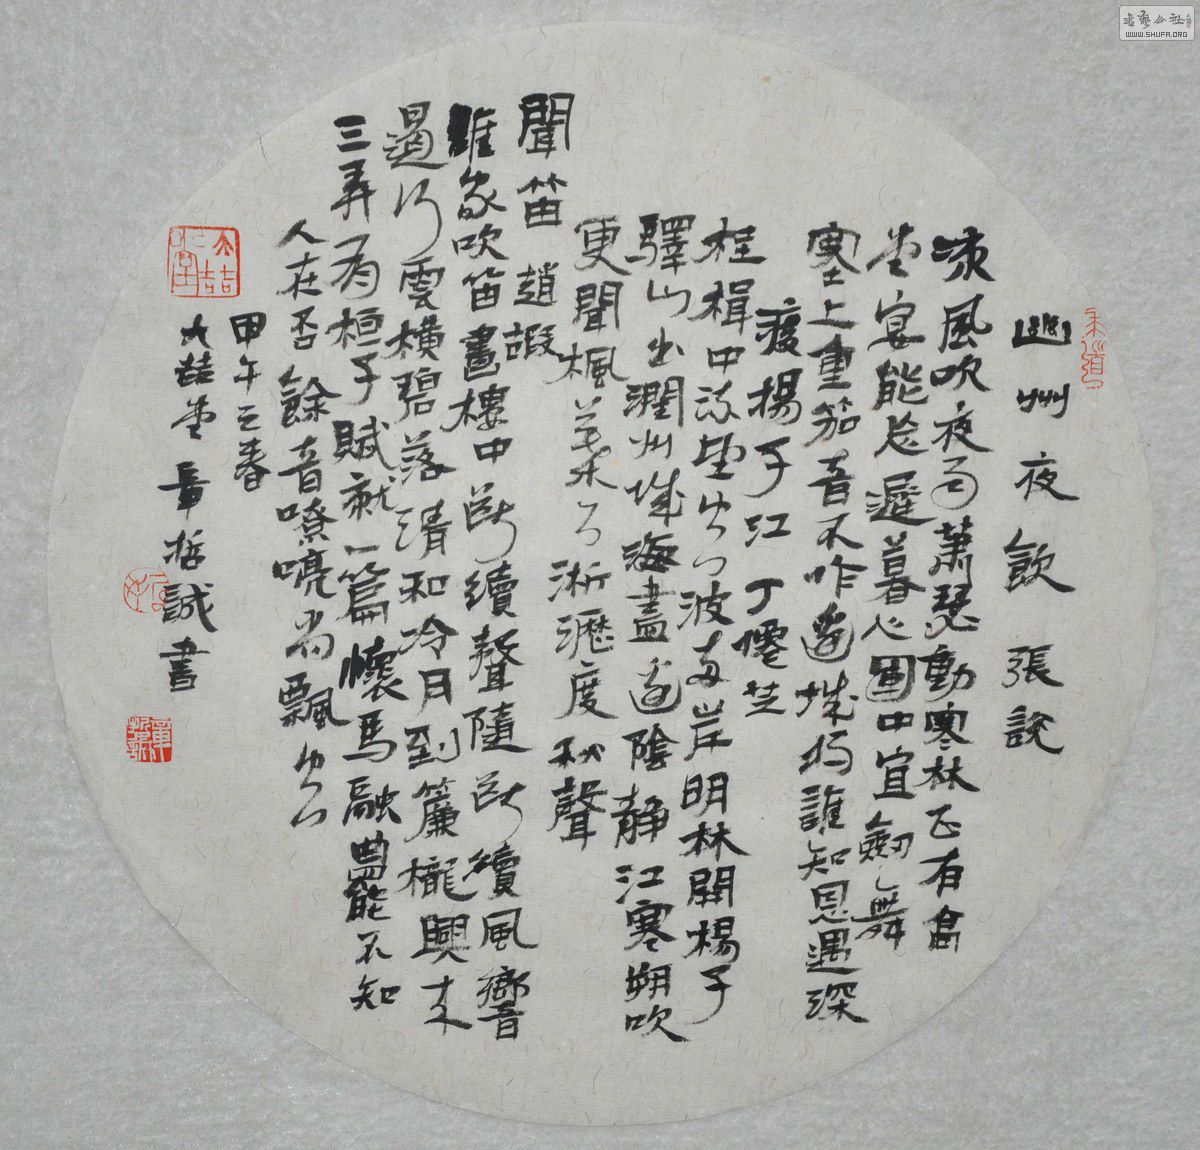 幽州夜飲 張説
涼風吹夜雨蕭瑟動寒林正有高
堂宴能忘遲暮心軍中宜劍舞
塞上重笳音不作邊城將誰知恩遇深
渡揚子江 丁僊芝
桂楫中流望空波兩岸明林開楊子
驛山出潤州城海盡邊陰靜江寒朔吹
更聞楓葉下淅瀝度秋聲
聞笛 趙嘏
誰家吹笛畫樓中斷續聲隨斷續風響
遏行雲橫碧落清和冷月到簾櫳興來
三弄有桓子賦就一篇懷馬融曲罷不知
人在否餘音嘹亮尚飄空
甲午之春
大喆堂章哲誠書
大喆堂
書藝公社
WWW.SHUFA.ORG